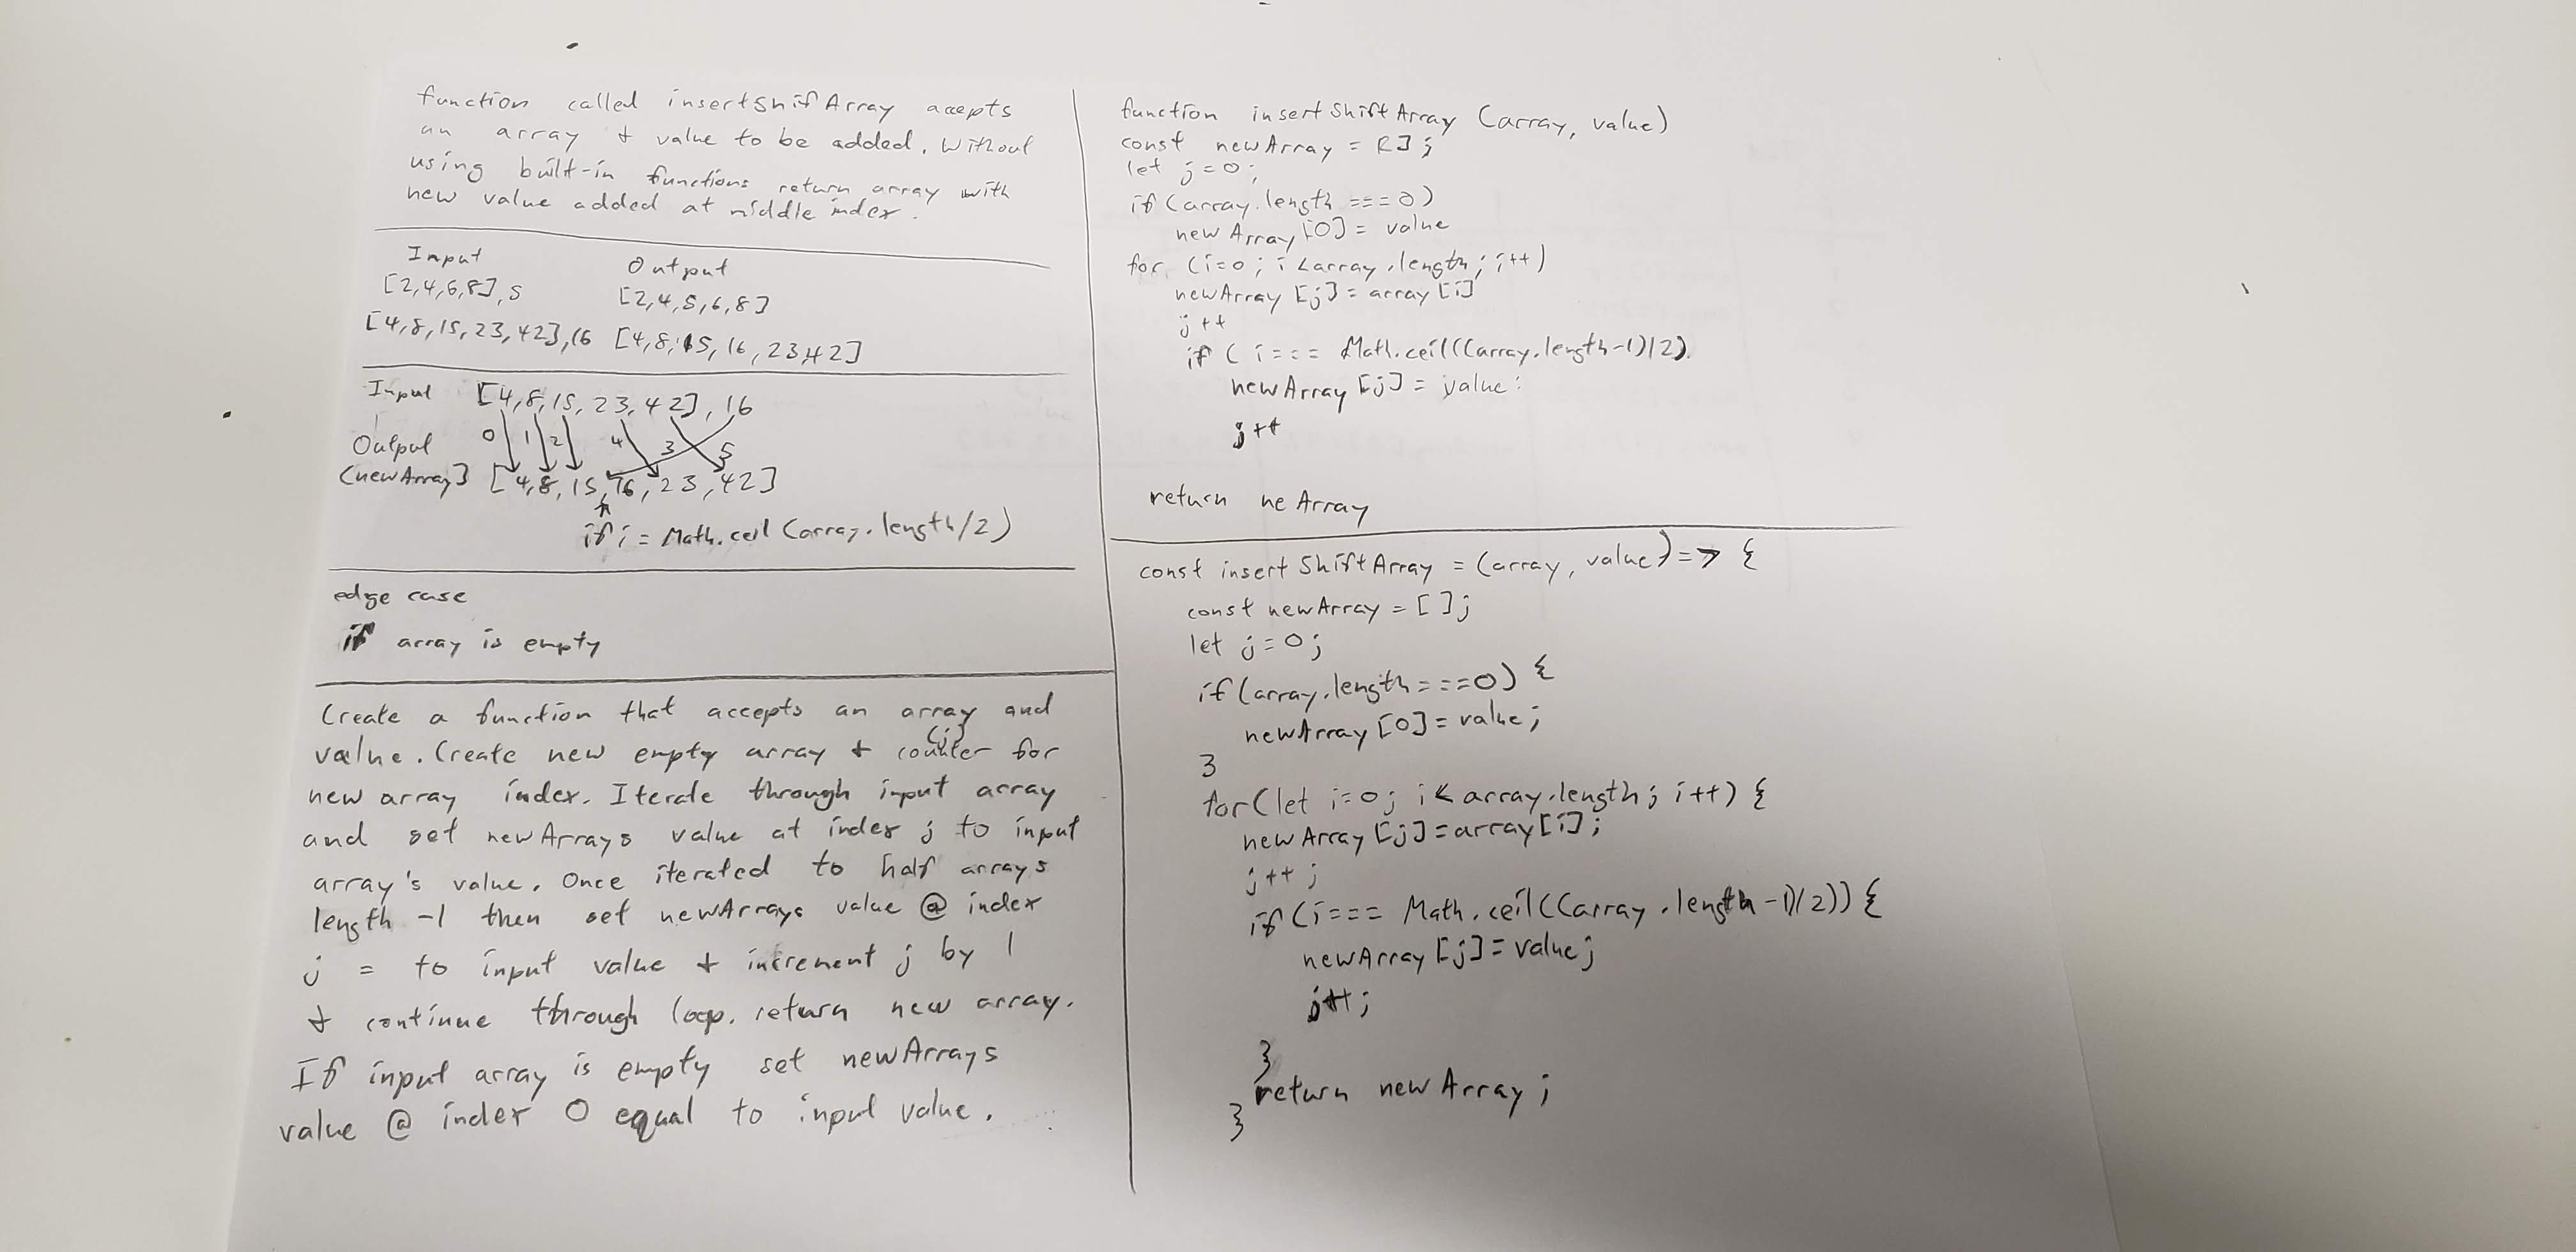 function called insertshif Array accepts
an array + value to be added. Without
using built-in functions return array with
new value added at middle index.
Input Output
[2,4,6,8],5 [2,4,5,6,8]
[4,8,15,23,42],16 [4,8,15,16,23,42]
Input [4,8,15,23,42],16
0 1 2 4 3 5
Output
(newArray] [4,8,15,16,23,42]
if i = Math.ceil (array.length/2)
edge case
if array is empty
Create a function that accepts an array and
(j)
value. Create new empty array + counter for
new array index. Iterate through input array
and set newArrays value at index j to input
array's value. Once iterated to half arrays
length -1 then set newArrays value @ index
j = to input value + increment j by 1
+ continue through loop. return new array.
If input array is empty set newArrays
value @ index 0 equal to input value.
function insertShiftArray (array, value)
const newArray = [];
let j=0;
if (array.length ===0)
newArray[0] = value
for (i=0; i<array.length; i++)
newArray [j] = array [i]
j++
if ( i=== Math.ceil((array.length-1)/2).
newArray [j] = value;
j++
return neArray
const insertShiftArray = (array, value) => {
const newArray = [];
let j=0;
if (array.length===0) {
newArray [0] = value;
}
for(let i=0; i< array.length; i++) {
newArray [j]=array[i];
j++;
if (i=== Math.ceil((array.length-1)/2)) {
newArray [j]=value;
j++;
}
return newArray;
}